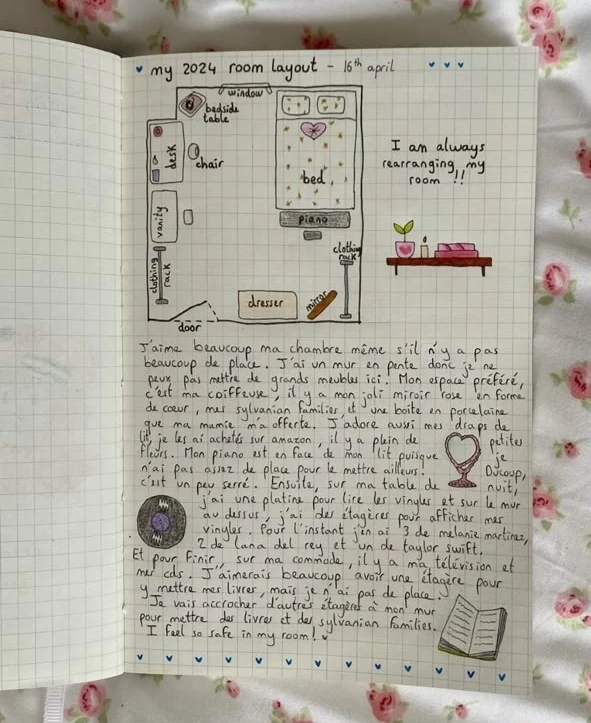 my 2024 room layout - 16th april
window
bedside
table
desk
chair
bed
vanity
piano
clothing
rack
clothing
rack
dresser
mirror
door
I am always
rearranging my
room !!
J'aime beaucoup ma chambre même s'il n'y a pas
beaucoup de place. J'ai un mur en pente donc je ne
peux pas mettre de grands meubles ici. Mon espace préféré,
c'est ma coiffeuse, il y a mon joli miroir rose en forme
de cœur, mes sylvanian families et une boite en porcelaine
que ma mamie m'a offerte. J'adore aussi mes draps de
lit, je les ai achetés sur amazon, il y a plein de petites
fleurs. Mon piano est en face de mon lit puisque je
n'ai pas assez de place pour le mettre ailleurs! Ducoup,
c'est un peu serré. Ensuite, sur ma table de nuit,
j'ai une platine pour lire les vinyles et sur le mur
au dessus, j'ai des étagères pour afficher mes
vinyles. Pour l'instant j'en ai 3 de melanie martinez,
2 de lana del rey et un de taylor swift.
Et pour finir, sur ma commode, il y a ma télévision et
mes cds. J'aimerais beaucoup avoir une étagère pour
y mettre mes livres, mais je n'ai pas de place.
Je vais accrocher d'autres étagères à mon mur
pour mettre des livres et des sylvanian families.
I feel so safe in my room!